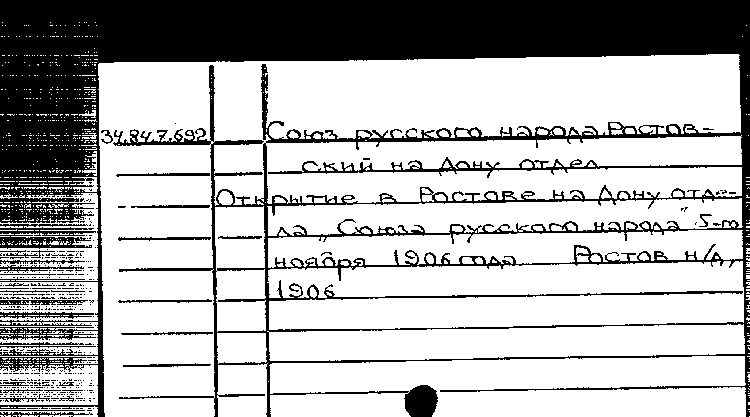 34.84.7.692 Союз русского народа. Ростов-
ский на Дону отдел.
Открытие в Ростове на Дону отде-
ла „Союза русского народа" 5-го
ноября 1906 года. Ростов н/Д,
1906